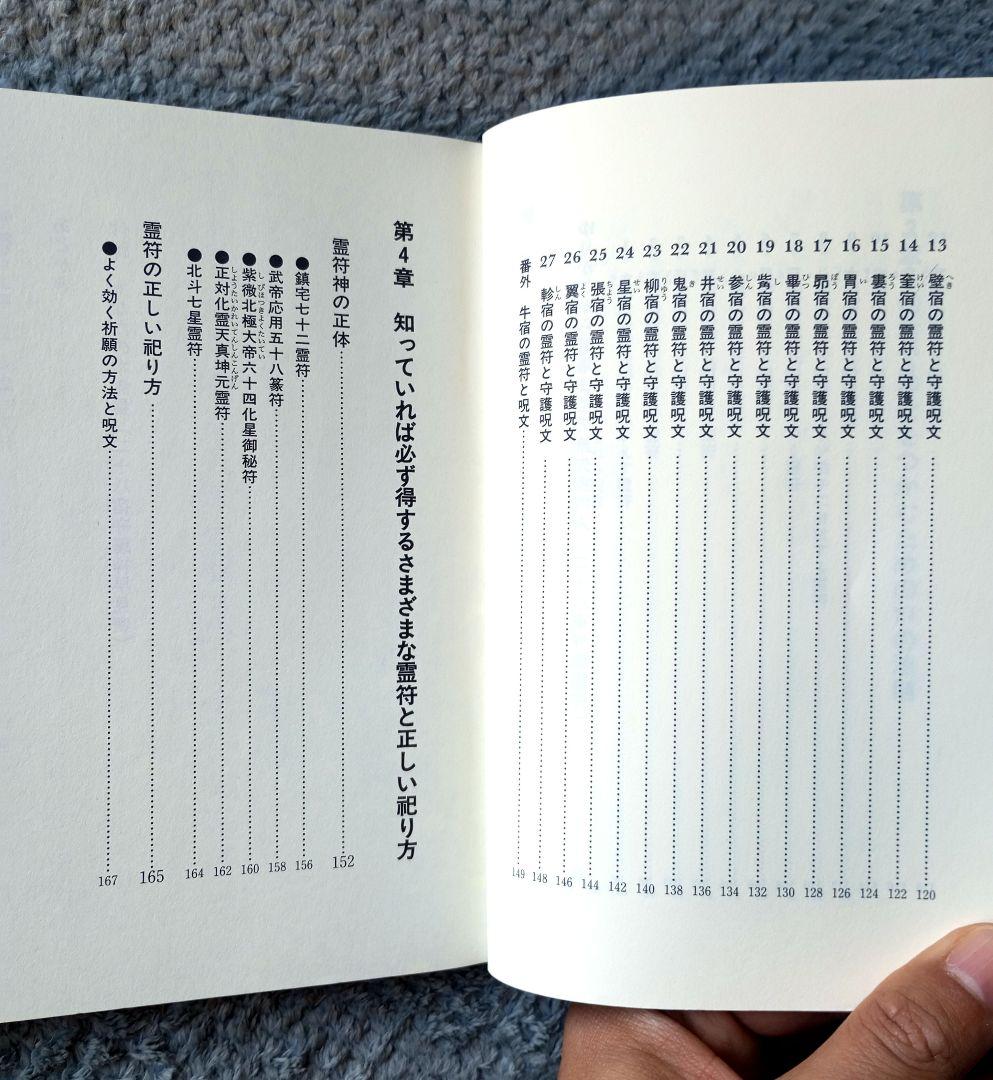 13 壁宿の霊符と守護呪文……120
14 奎宿の霊符と守護呪文……122
15 婁宿の霊符と守護呪文……124
16 胃宿の霊符と守護呪文……126
17 昴宿の霊符と守護呪文……128
18 畢宿の霊符と守護呪文……130
19 觜宿の霊符と守護呪文……132
20 参宿の霊符と守護呪文……134
21 井宿の霊符と守護呪文……136
22 鬼宿の霊符と守護呪文……138
23 柳宿の霊符と守護呪文……140
24 星宿の霊符と守護呪文……142
25 張宿の霊符と守護呪文……144
26 翼宿の霊符と守護呪文……146
27 軫宿の霊符と守護呪文……148
番外 牛宿の霊符と呪文……149
第4章 知っていれば必ず得するさまざまな霊符と正しい祀り方
霊符神の正体……152
●鎮宅七十二霊符……156
●武帝応用五十八篆符……158
●紫微北極大帝六十四化星御秘符……160
●正対化霊天真坤元霊符……162
●北斗七星霊符……164
霊符の正しい祀り方……165
●よく効く祈願の方法と呪文……167